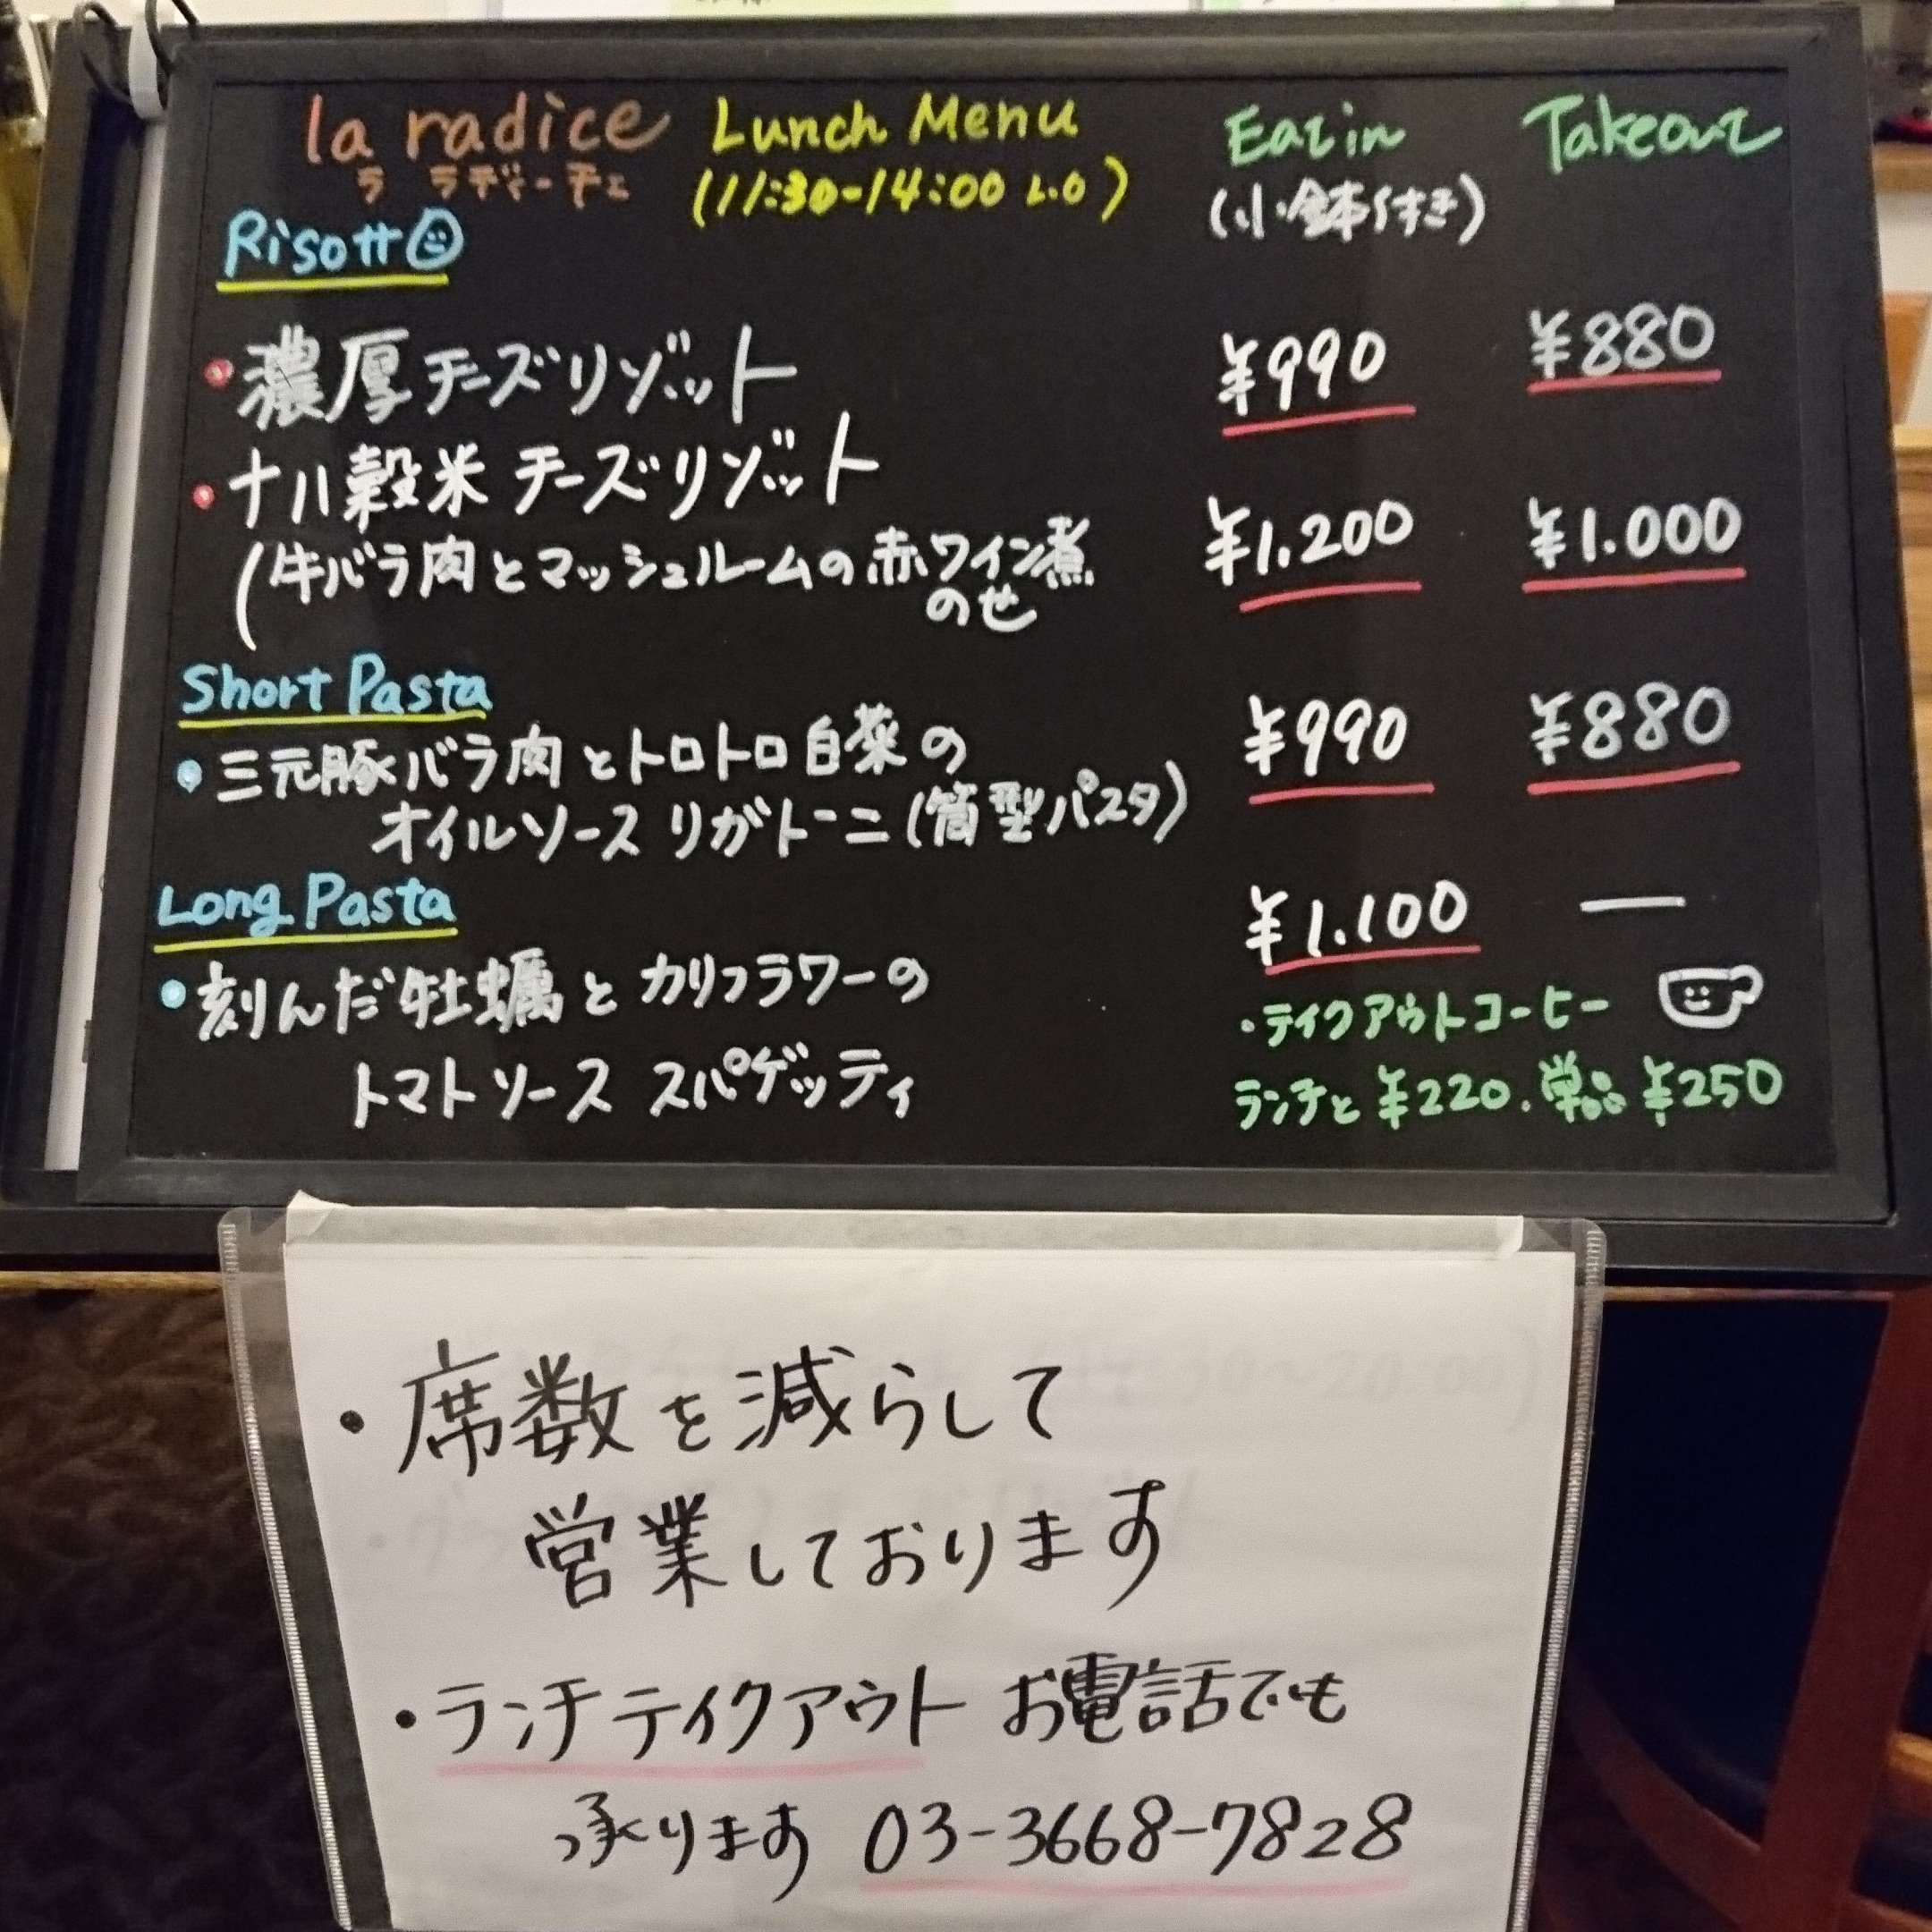 la radice Lunch Menu Eat in Takeout
ラ ラディーチェ (11:30-14:00 L.O) (小鉢付き)
Risotto
・濃厚チーズリゾット ¥990 ¥880
・十八穀米 チーズリゾット
(牛バラ肉とマッシュルームの赤ワイン煮 ¥1.200 ¥1.000
のせ
Short Pasta
・三元豚バラ肉とトロトロ白菜の ¥990 ¥880
オイルソース リガトーニ(筒型パスタ)
Long Pasta ¥1.100 —
・刻んだ牡蠣とカリフラワーの ・テイクアウトコーヒー
トマトソース スパゲッティ ランチと ¥220. 単品 ¥250
・席数を減らして
営業しております
・ランチテイクアウト お電話でも
承ります 03-3668-7828